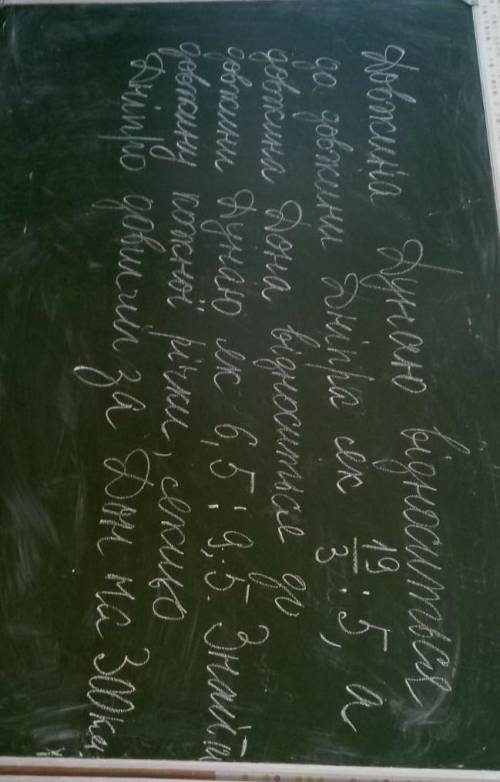 Довжина Дунаю відноситься
до довжини Дніпра як 19/3 : 5, а
довжина Дона відноситься до
довжини Дунаю як 6,5 : 9,5. Знайти
довжину кожної річки, якщо
Дніпро довший за Дон на 300км